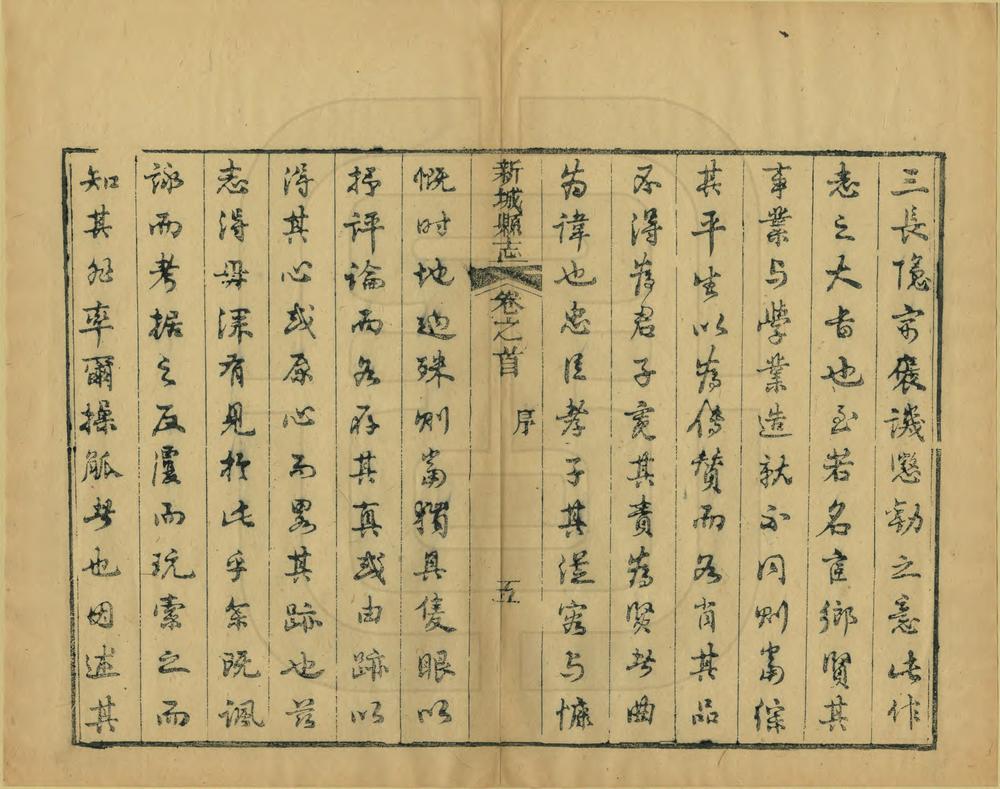 三長隱寓褒譏懲勸之意此作
志之大旨也至若名宦鄉賢其
事業与學業造就不同則當綜
其平生以為傳贊而各肖其品
不得為君子寬其責為賢者曲
為諱也忠臣孝子其從容与慷
新城縣志 卷之首 序 五
慨时地迥殊則當獨具隻眼以
擇評論而各存其真或由跡以
得其心或原心而畧其跡也茲
志得毋深有見於此乎余既諷
詠而考据之反覆而玩索之而
知其非率爾操觚者也因述其